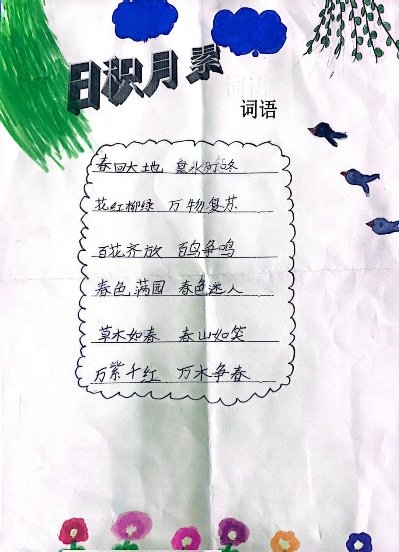 日积月累
词语
词语
春回大地
花红柳绿 万物复苏
百花齐放 百鸟争鸣
春色满园 春色迷人
草木如春 春山如笑
万紫千红 万木争春